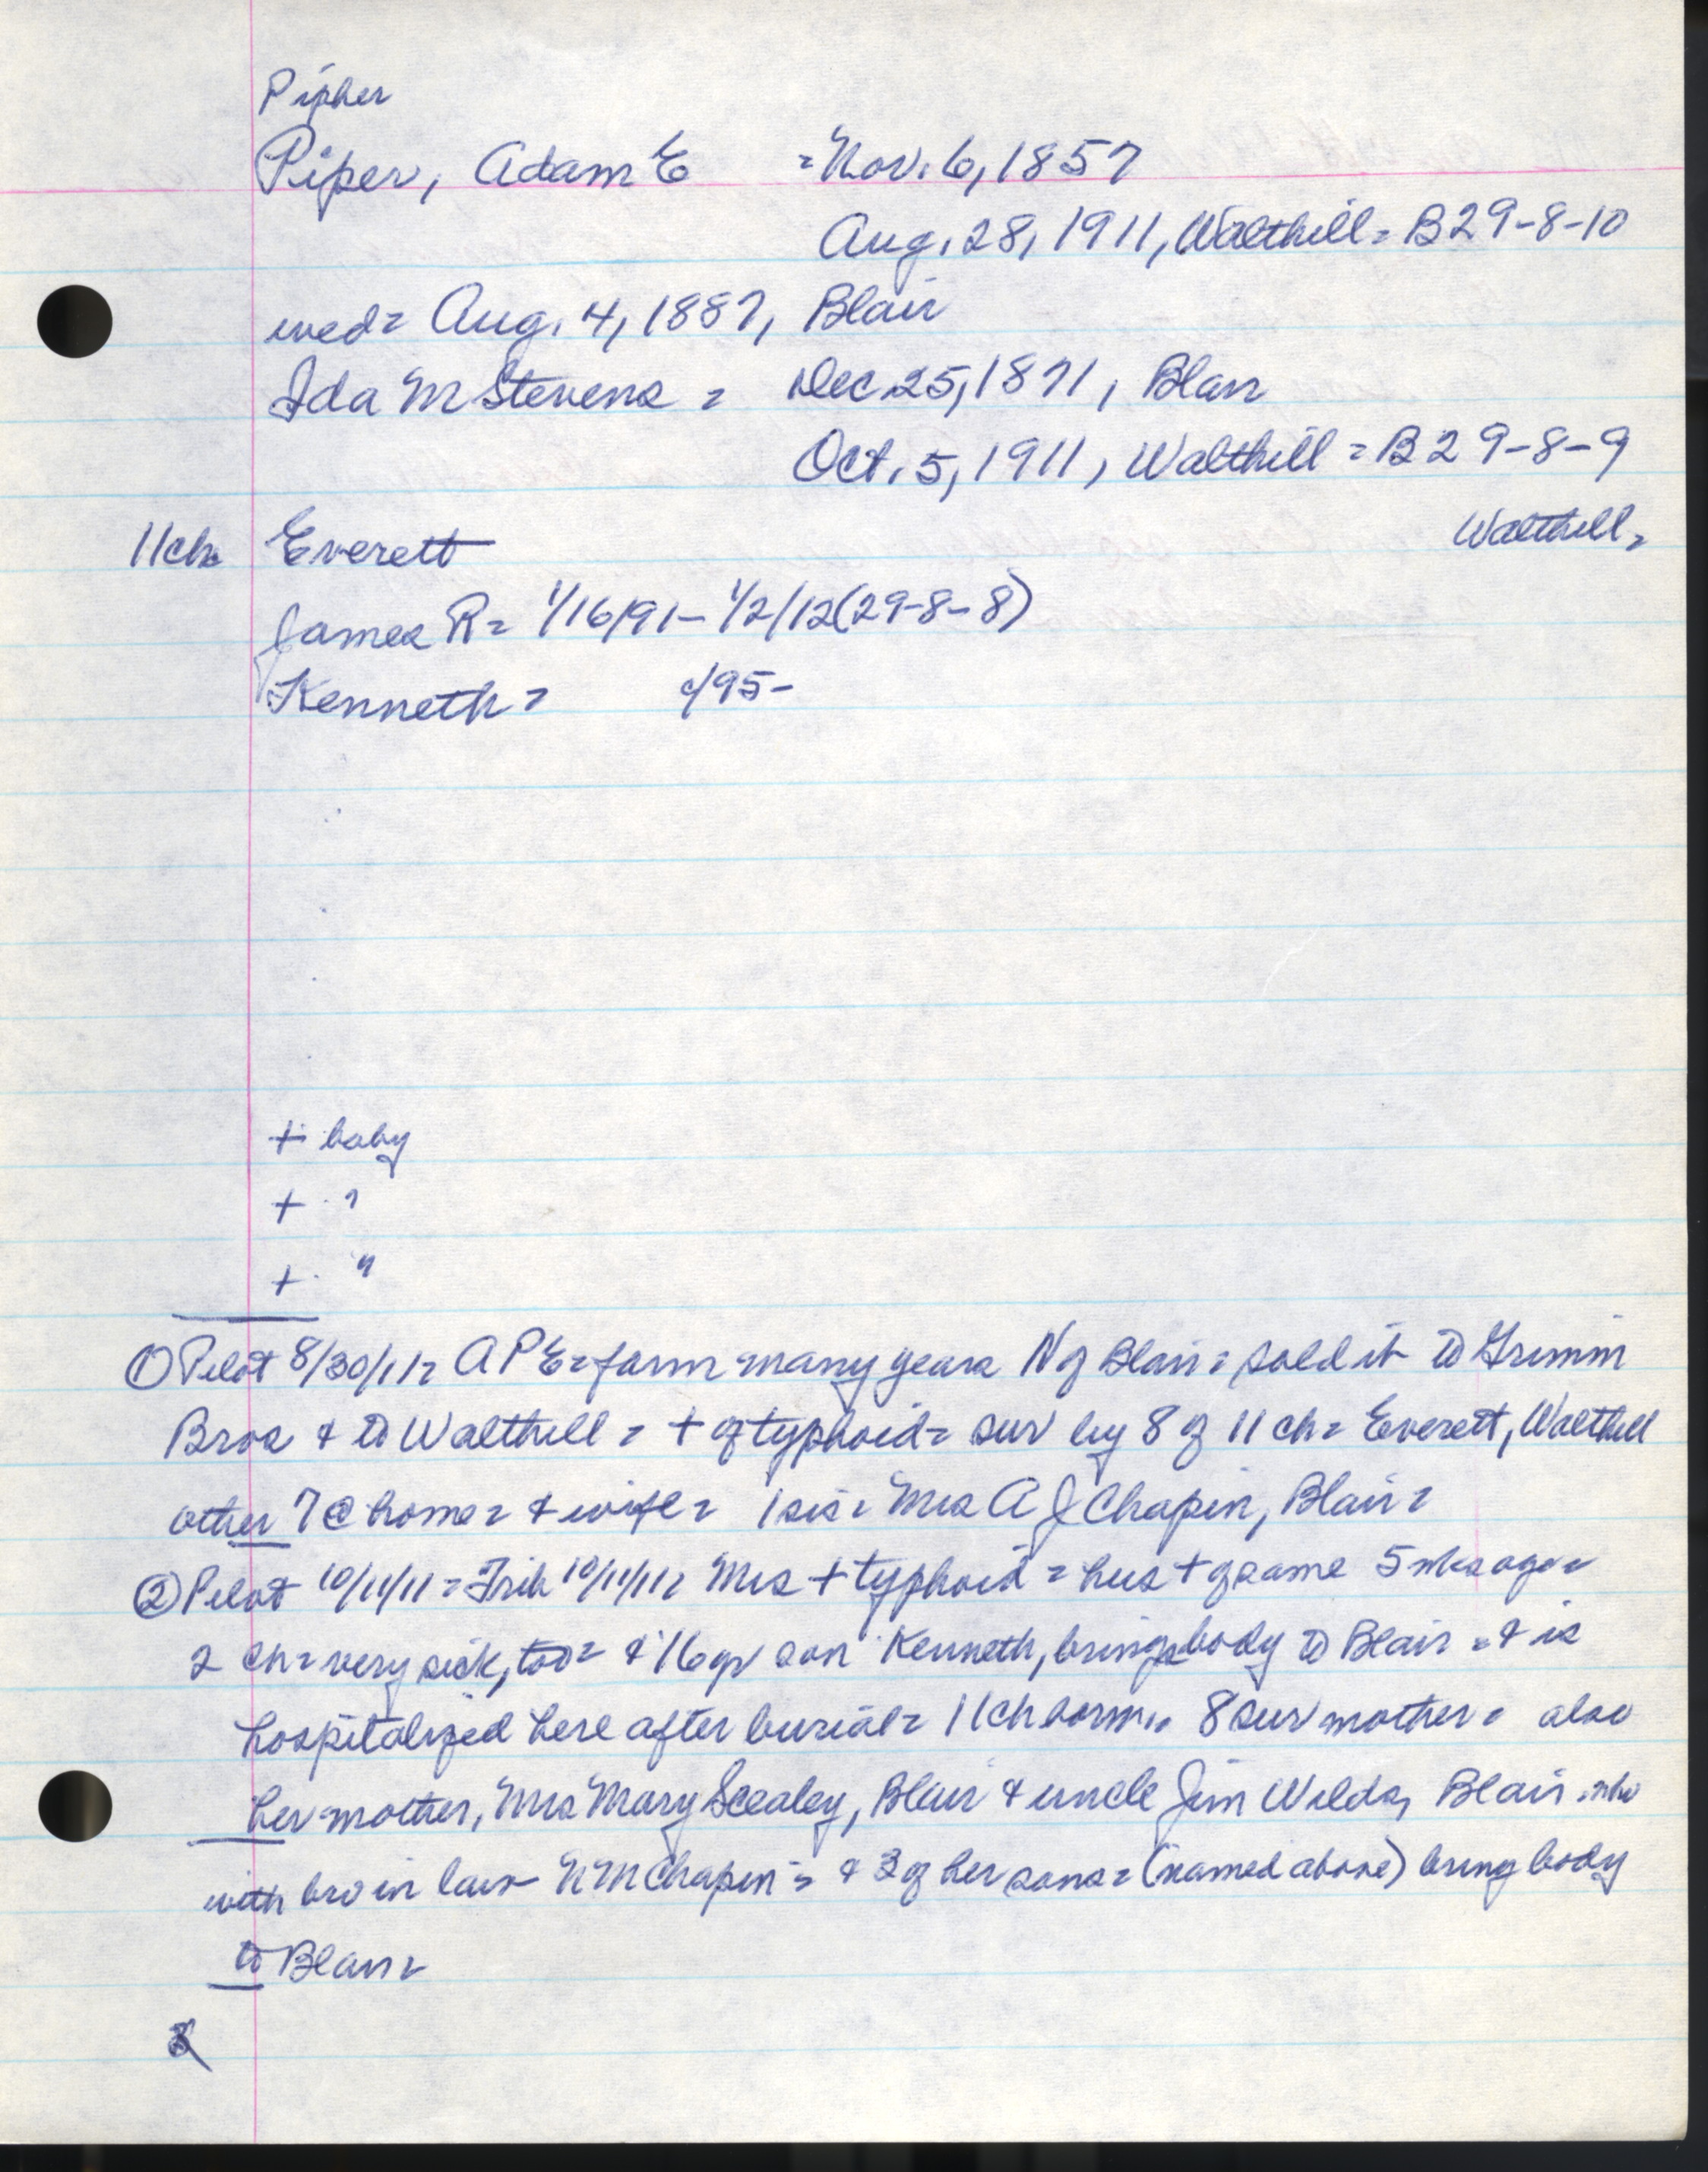 Pipher
Piper, Adam E = Nov. 6, 1857
Aug. 28, 1911, Walthill = B29-8-10
wed = Aug. 4, 1887, Blair
Ida M Stevens = Dec 25, 1871, Blair
Oct. 5, 1911, Walthill = B29-8-9
11ch Everett Walthill =
James R = 1/16/91 - 1/2/12 (29-8-8)
Kenneth = c/95 -
+ baby
+ "
+ "
① Pilot 8/30/11 = A P E = farm many years N of Blair = sold it to Grimm
Bros & to Walthill = + of typhoid = sur by 8 of 11 ch = Everett, Walthill
other 7 @ home = & wife = 1 sis = Mrs A J Chapin, Blair =
② Pilot 10/11/11 = Trib 10/11/11 = Mrs + typhoid = hus + of same 5 wks ago =
2 ch = very sick, too = & 16 yr son Kenneth, brings body to Blair = & is
hospitalized here after burial = 11 ch born, 8 sur mother = also
her mother, Mrs Mary, Blair & uncle Jim Wilds, Blair. who
with bro in law N M Chapin = & 3 of her sons = (named above) bring body
to Blair =